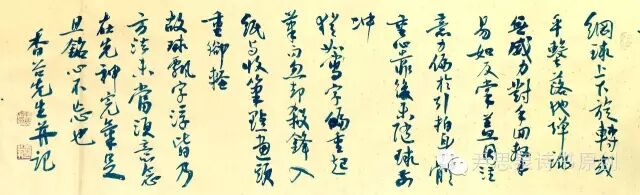 網球上下旋轉或
平擊落地彈球
無威力對手回擊
易如反掌蓋因注
意力偏於引拍且前
重心靠後未隨球而
冲
猶如寫字偏重起
筆而忽却殺鋒入
紙与收筆點畫頭
重脚輕
故球飄字浮皆乃
方法未當須意念
在先神完氣足
且銘心不忘也
香谷先生并記